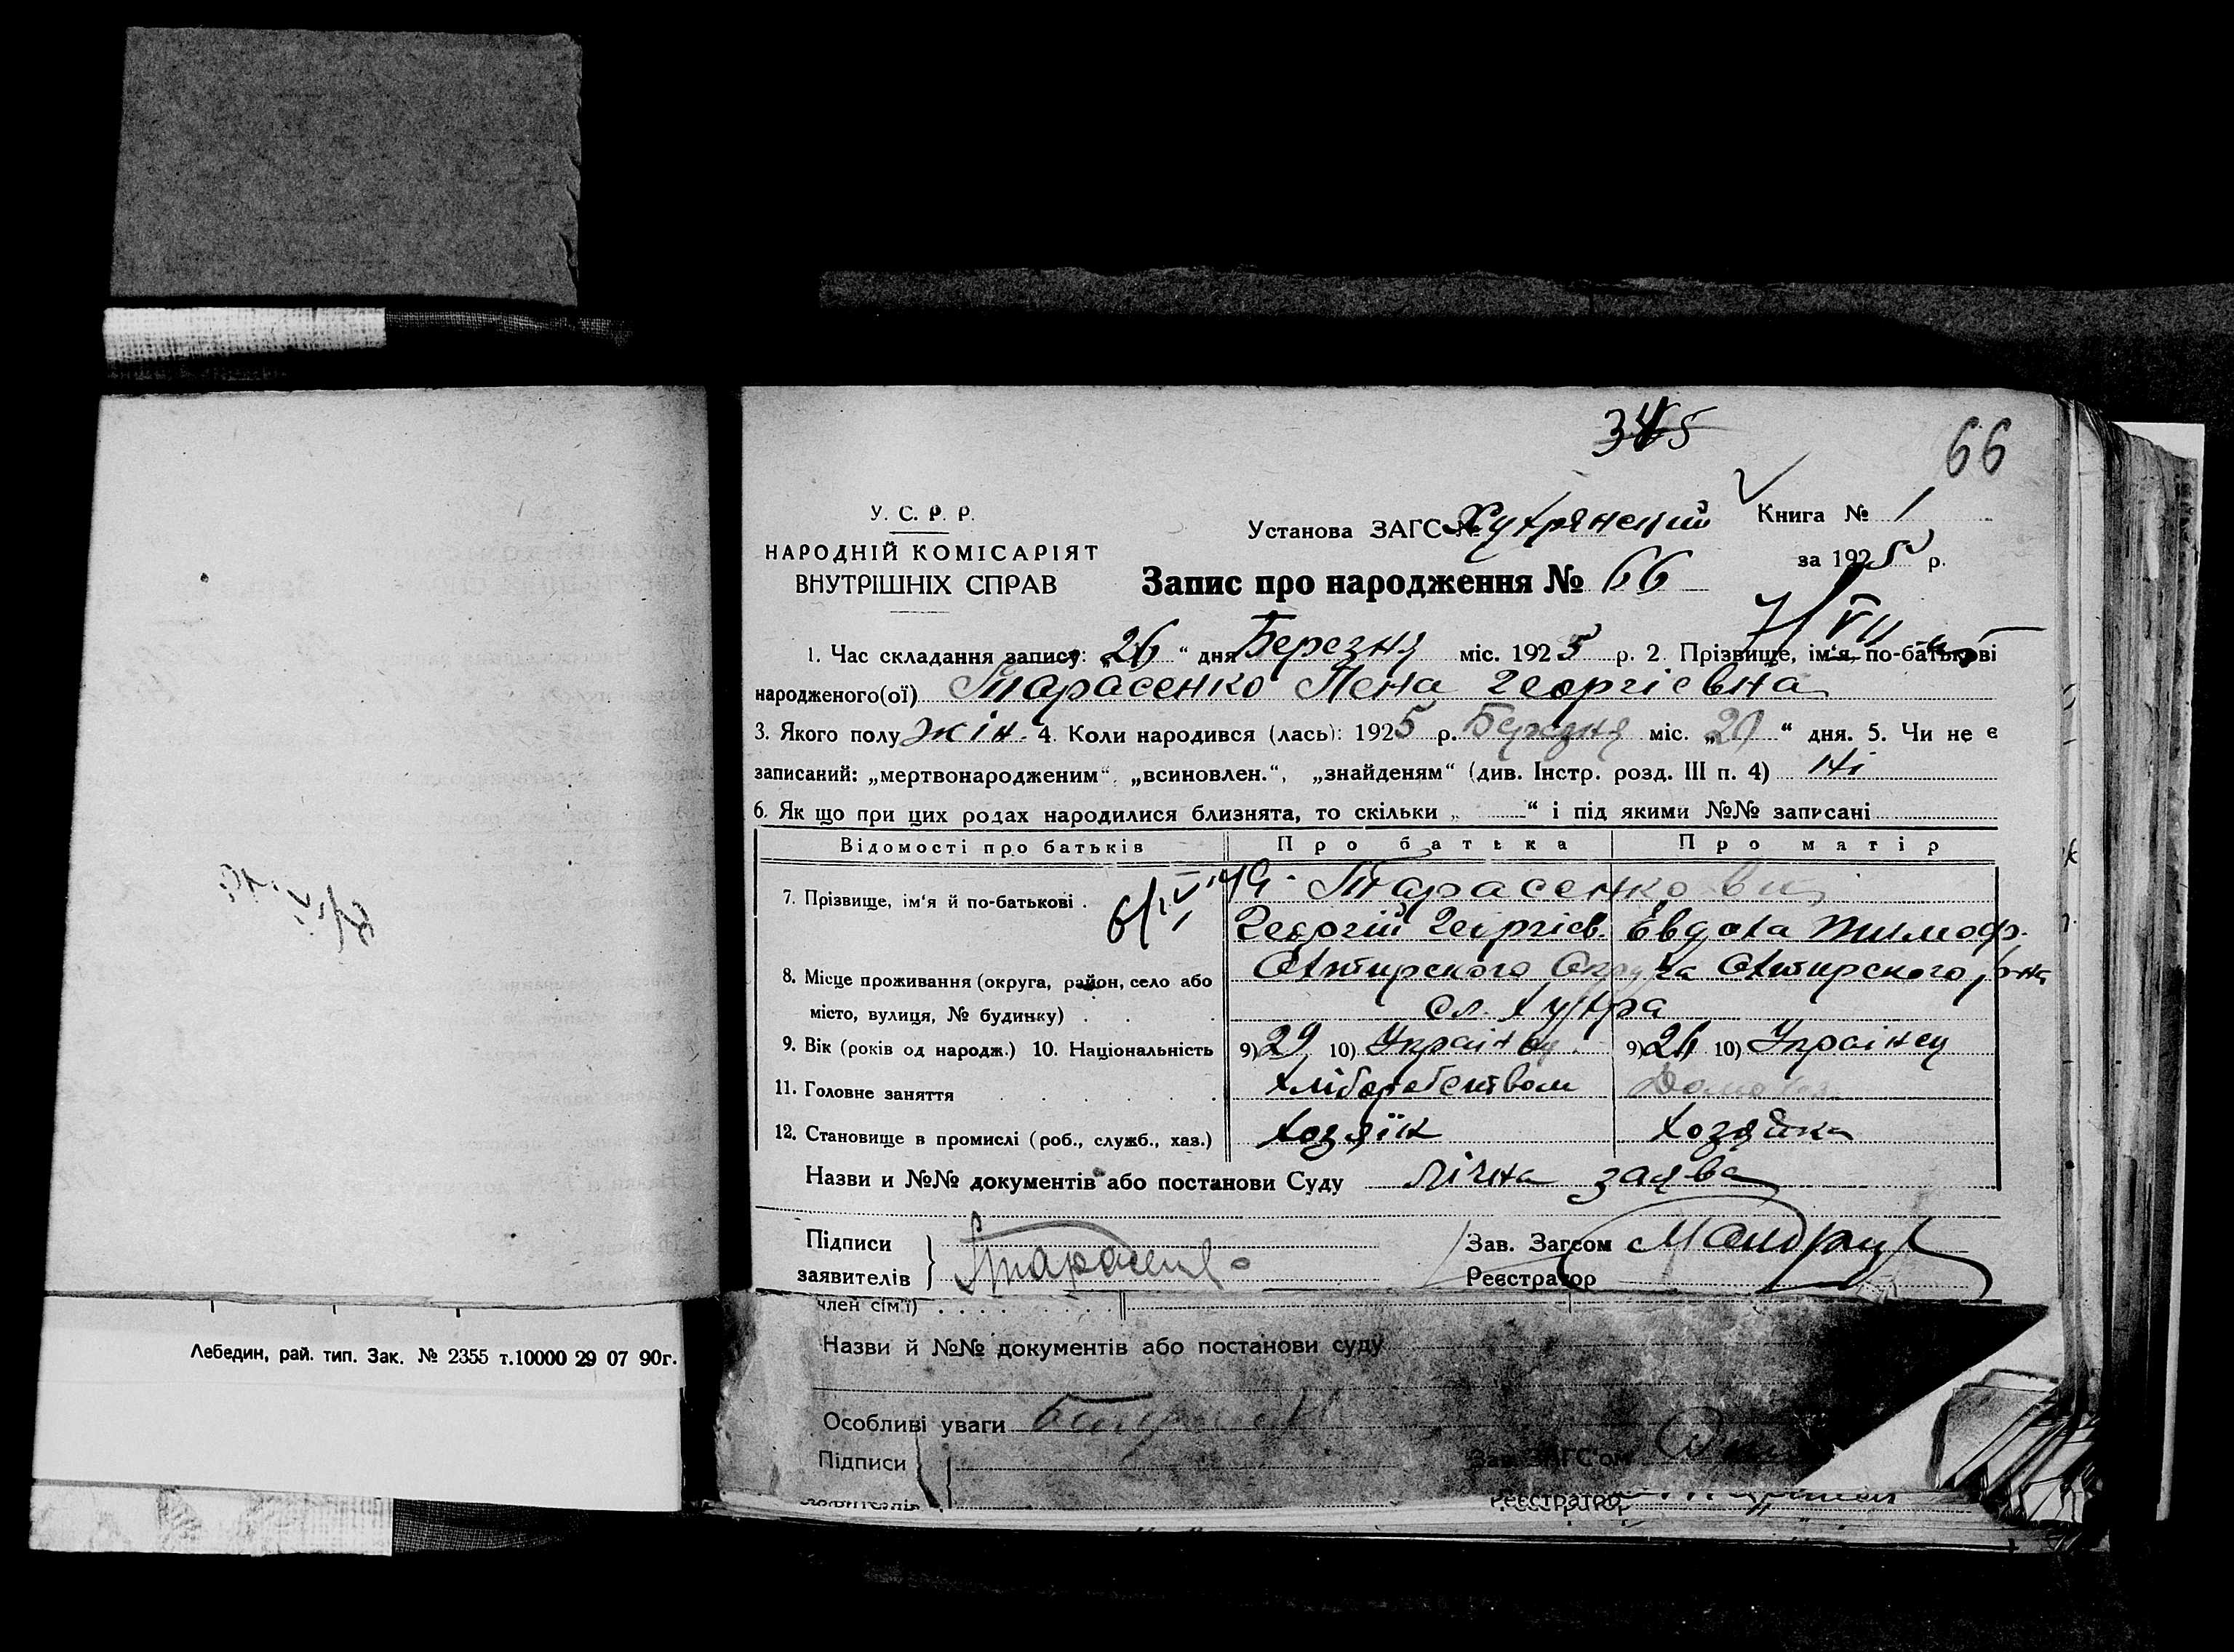 345
66
У. С. Р. Р.
НАРОДНІЙ КОМІСАРІЯТ
ВНУТРІШНІХ СПРАВ
Установа ЗАГС № Хухрянский
Книга № 1
за 1925 р.
Запис про народження № 66
7/VII
1. Час складання запису: „26“ дня Березня міс. 1925 р. 2. Прізвище, ім'я, по-батькові
народженого(ої) Тарасенко Лена Георгієвна
3. Якого полу жін. 4. Коли народився (лась): 1925 р. Березня міс. „20“ дня. 5. Чи не є
записаний: „мертвонародженим“, „всиновлен.“, „знайденям“ (див. Інстр. розд. III п. 4) Ні
6. Як що при цих родах народилися близнята, то скільки „ “ і під якими №№ записані
Відомості про батьків Про батька Про матір
7. Прізвище, ім'я й по-батькові . Тарасенкови
Георгій Георгієв. Евдокія Тимоф.
8. Місце проживання (округа, район, село або Охтирского Округа Охтирского р-на
місто, вулиця, № будинку) . . . сл. Хухра
9. Вік (років од народж.) 10. Національність 9) 29 10) Украінец 9) 26 10) Украінец
11. Головне заняття . . . . . . Хліборобством
12. Становище в промислі (роб., служб., хаз.) Хозяїн Хозяйка
Назви и №№ документів або постанови Суду лічна заява
Підписи
заявителів } Тарасенко
Зав. Загсом
Реєстратор
член сім'ї) . . . . . . . .
Назви й №№ документів або постанови суду
Особливі уваги
Підписи
Зав. ЗАГС'ом
заявителів
Реєстратор
Лебедин, рай. тип. Зак. № 2355 т.10000 29 07 90г.